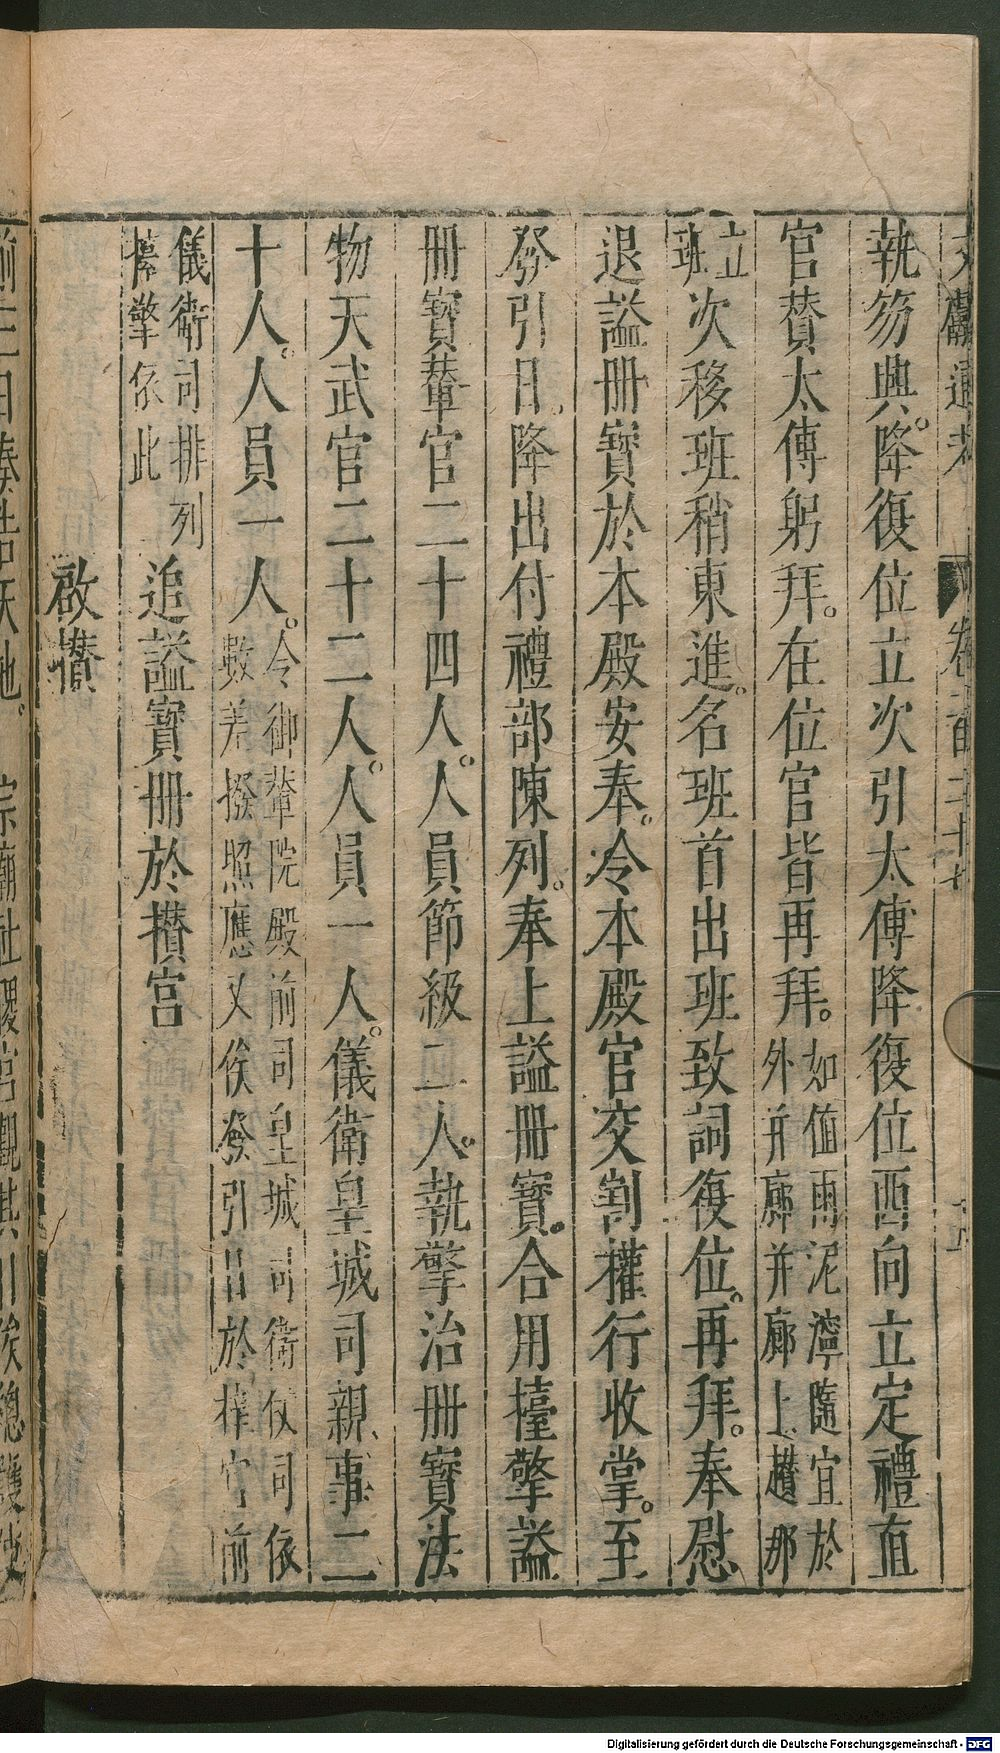 文獻通考 卷一百二十七
執笏興降復位立次引太傅降復位西向立定禮直
官賛太傅躬拜在位官皆再拜如值雨泥濘隨宜於
外并廊并廊上趲那
立班次移班稍東進名班首出班致詞復位再拜奉慰
退謚冊寳於本殿安奉令本殿官交割權行收掌至
發引日降出付禮部陳列奉上謚冊寳合用擡擎謚
冊寳輦官二十四人人員節級二人執擎治冊寳法
物天武官二十二人人員一人儀衛皇城司親事二
十人人員一人令御輦院殿前司皇城司衛仗司依
數差撥照應又俟發引日於欑宮前
儀衛司排列
擡擎依此追謚寳冊於攅宮
啟攅
前三日奏告天地 宗廟社稷宮觀其日俟總護使
Digitalisierung gefördert durch die Deutsche Forschungsgemeinschaft - DFG